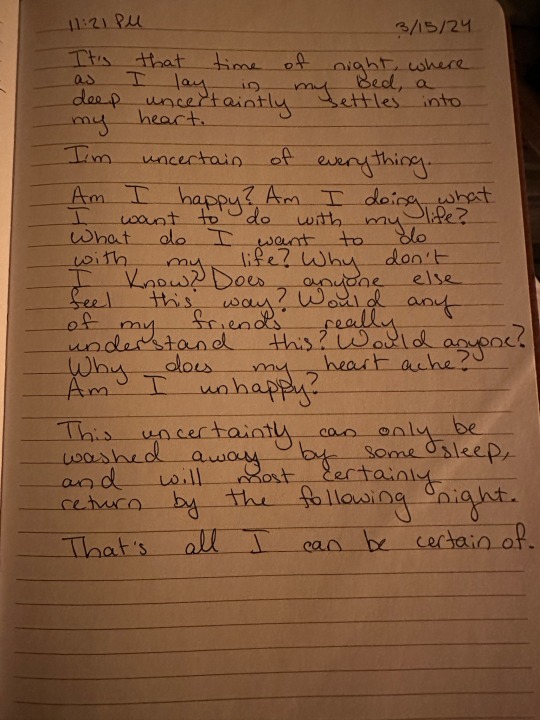 11:21 PM 3/15/24
It's that time of night, where
as I lay in my bed, a
deep uncertaintly settles into
my heart.
I'm uncertain of everything.
Am I happy? Am I doing what
I want to do with my life?
What do I want to do
with my life? Why don't
I Know? Does anyone else
feel this way? Would any
of my friends really
understand this? Would anyone?
Why does my heart ache?
Am I unhappy?
This uncertainty can only be
washed away by some sleep,
and will most certainly
return by the following night.
That's all I can be certain of.